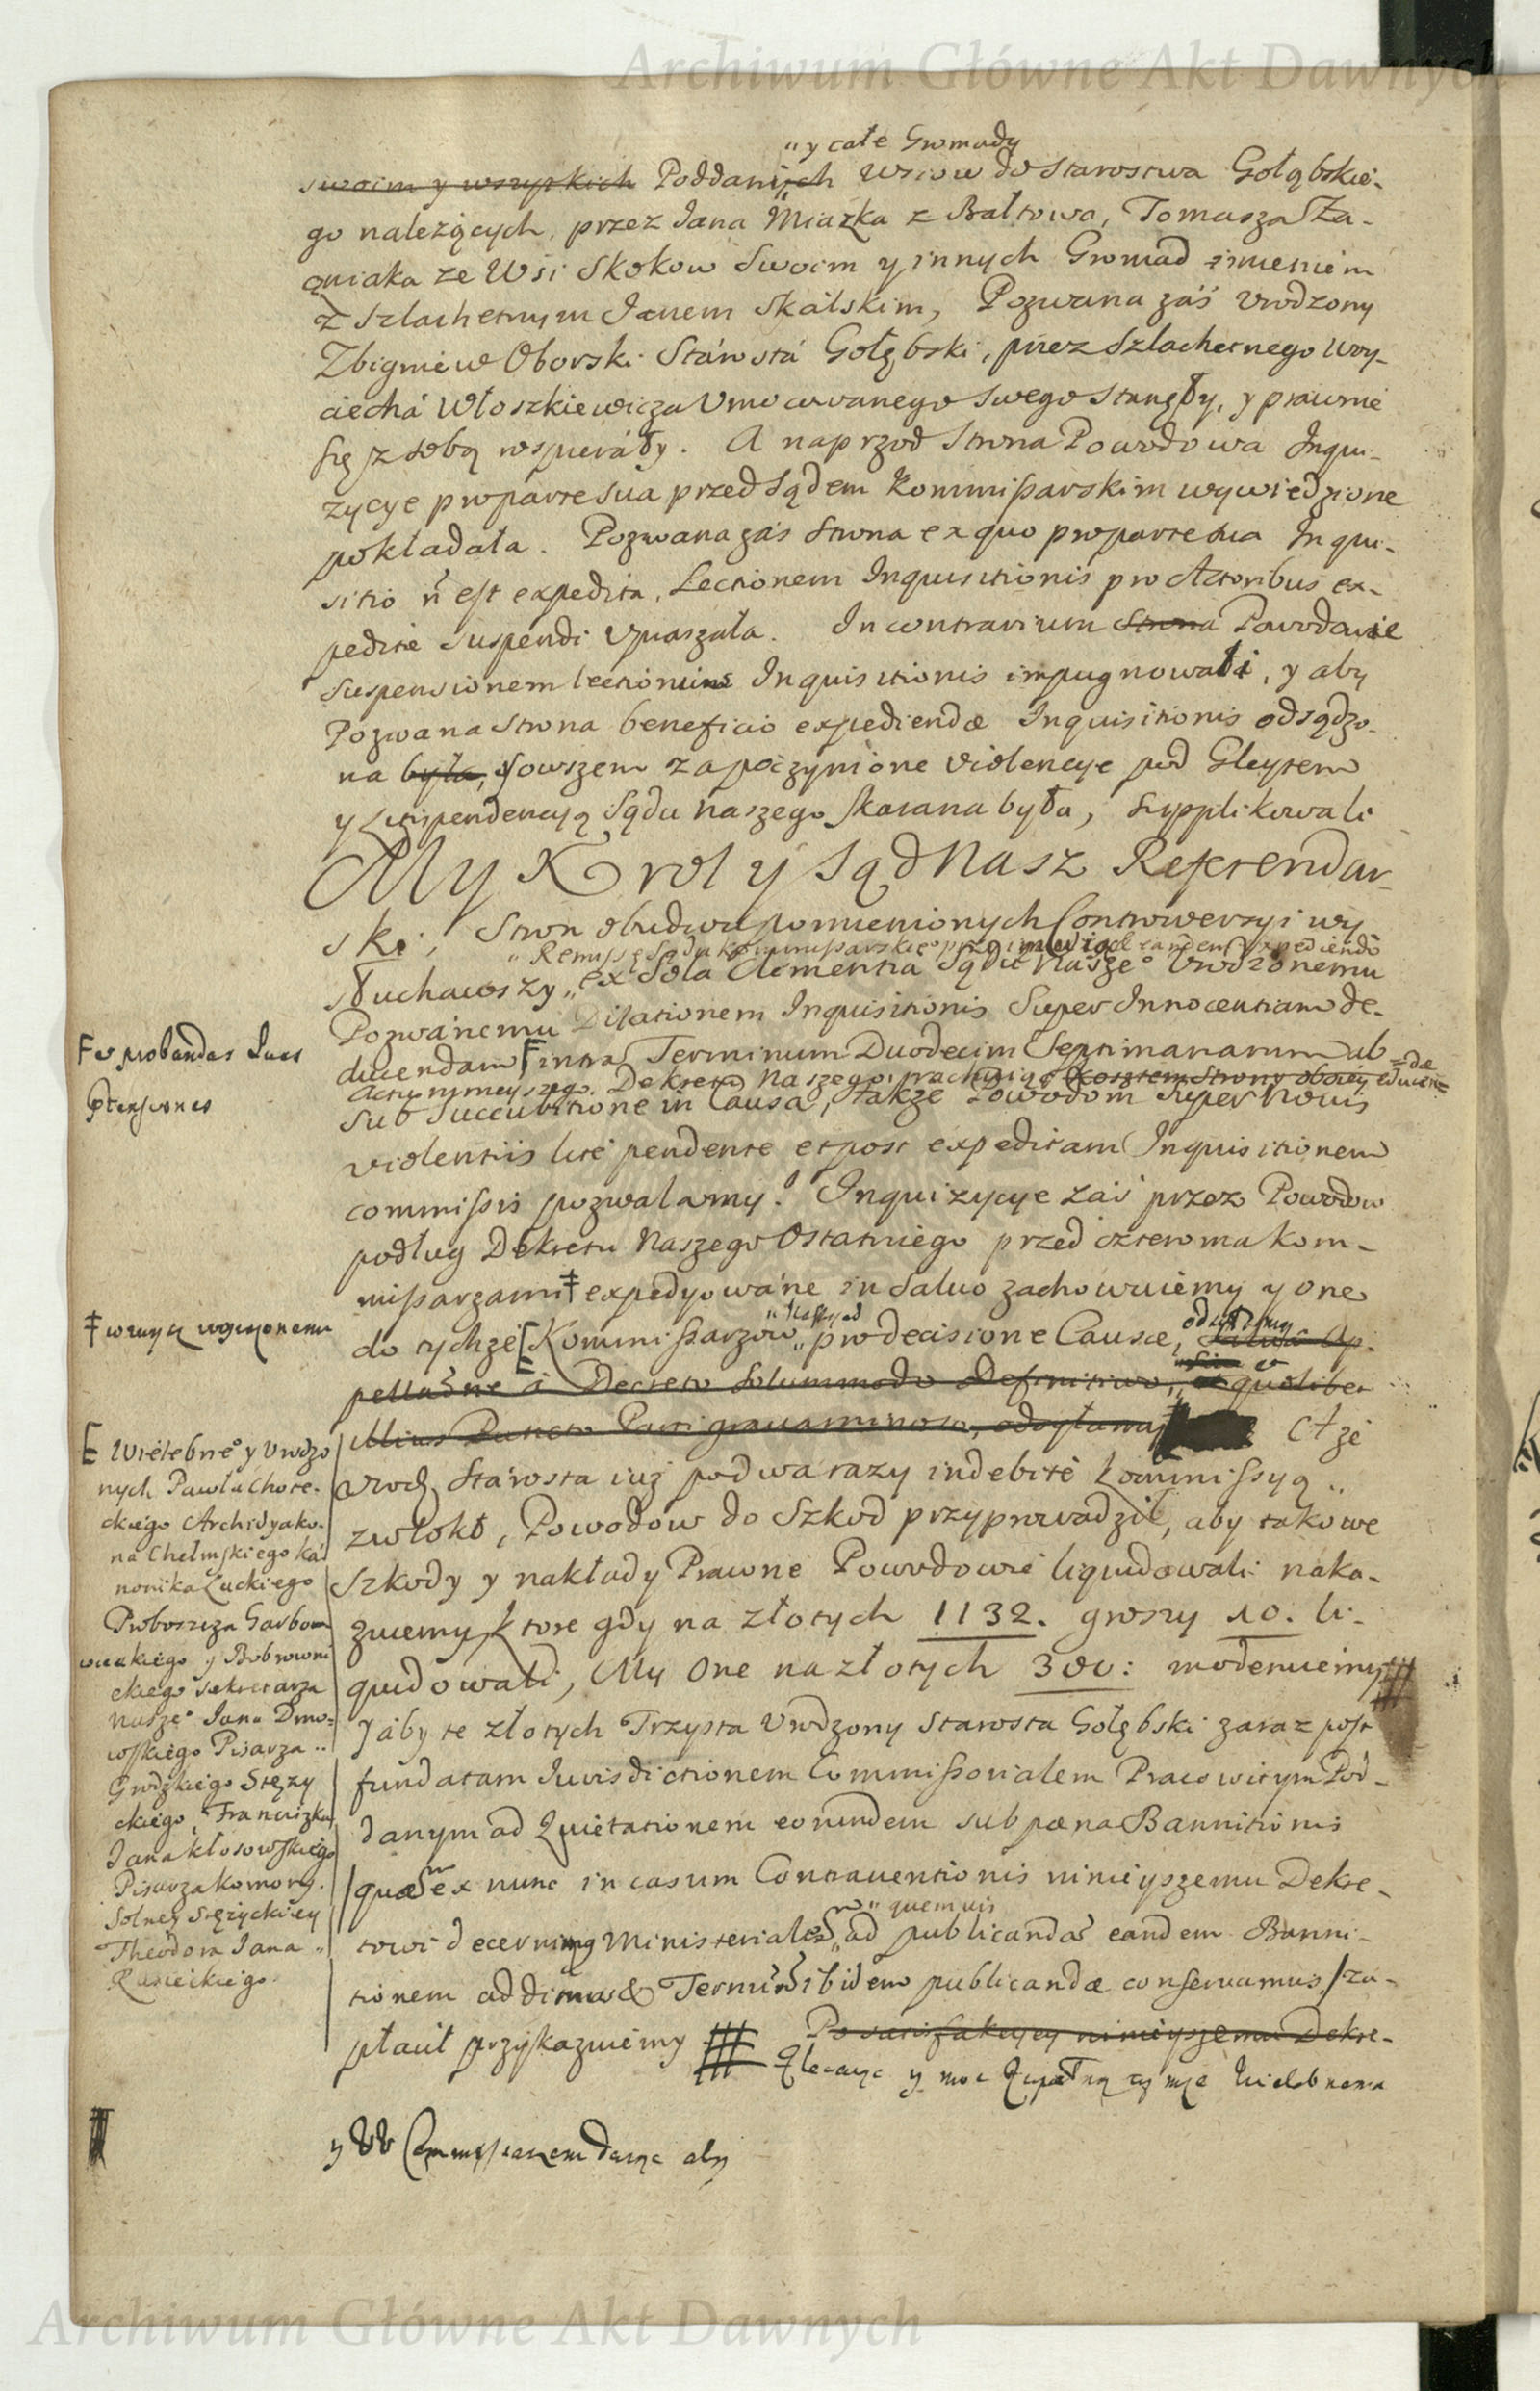 Archiwum Główne Akt Dawnych
„ y całe Gromady
swoim y wszystkich Poddanych Wsiow do Starostwa Gołębskie-
go należących, przez Jana Miazka z Bałtowa, Tomasza Ża-
gniaka ze Wsi Skokow Swoim y innych Gromad imieniem
z Szlachetnym Janem Skalskim, Pozwana zaś Urodzony
Zbigniew Oborski Starosta Gołębski, przez Szlachetnego Woy-
ciecha Włoszkiewicza Umocowanego Swego Stanęły, y prawnie
się z sobą wspierały. A naprzod Strona Powodowa Inqui-
zycye pro parte sua przed Sądem Kommissarskim wywiedzione
pokładała. Pozwana zaś Strona ex quo pro parte sua Inqui-
sitio ñ est expedita, Lectionem Inquisitionis pro Actoribus ex-
pedite suspendi upraszała. In contrarium Strona Powodowie
Suspensionem lectionis Inquisitionis impugnowali, y aby
Pozwana Strona beneficio expediendæ Inquisitionis odsądzo-
na była, y owszem za poczynione violencye pod Gleytem
y Litispendencyą Sądu Naszego skarana była, supplikowali
My Krol y Sąd Nasz Referendar-
ski, Stron obudwu pomienionych Controwersyi wy
„ Remissę Sądu Kommissarskiego eandem expediendi
słuchawszy „ ex Sola Clementia Sądu Nasze° Urodzonemu
Pozwanemu Dilationem Inquisitionis Super Innocentiam de-
ducendam F intra Terminum Duodecim Septimanarum ab
Actu ninieyszego Dekretu Naszego, rachuiąc kosztem Strony oboiey
sub Succubitione in Causa, także Powodom super Novis
violentiis lite pendente et post expeditam Inquisitionem
commissis pozwalamy. Inquizycye zaś przez Powodow
podług Dekretu Naszego Ostatniego przed czterema Kom-
missarzami ‡ expedyowane in Salvo zachowuiemy y one
do tychże [ Kommissarzow „ pro decisione Causæ, odsyłamy salva Ap-
pellatione a Decreto Solummodo Definitivo, quolibet
illius Puncto Parti gravaminoso, odsyłamy A że
Urodz. Starosta iuż po dwa razy indebite Kommissyą
zwlokł, Powodow do Szkod przyprowadził, aby takowe
Szkody y nakłady Prawne Powodowie liquidowali naka-
zuiemy ktore gdy na złotych 1132. groszy 10. li-
quidowali, My One na złotych 300: moderuiemy
J aby te złotych Trzysta Urodzony Starosta Gołębski zaraz post
fundatam Jurisdictionem Commissorialem Pracowitym Pod-
danym ad Quietationem eorundem sub pœna Bannitionis
/ quam ex nunc in casum Contraventionis ninieyszemu Dekre-
„ quemvis
towi decernimus Ministerialem „ ad publicandam eandem Banni-
tionem addimus & Terminum ibidem publicandæ conservamus / za-
płacił przykazuiemy Po satisfakcyey ninieyszemu Dekre-
Zlecaiąc y moc zupełną tymże Wielebnemu
y UU Commissarzom daiąc aby
F et probandas suas
ptensiones
‡ wzwyż wyrażonemi
[ Wielebne° y Urodzo
nych Pawła Chore-
ckiego Archidyako-
na Chełmskiego Ka-
nonika Łuckiego
Proboszcza Garbow
wskiego y Bobrowni
ckiego Sekretarza
Nasze° Jana Dmo-
wskiego Pisarza
Grodzkiego Stęzy
ckiego, Franciszka
Jana Kłosowskiego
Pisarza Komory
Solney Stęzyckiey
Theodora Jana
Rusieckiego
Archiwum Główne Akt Dawnych